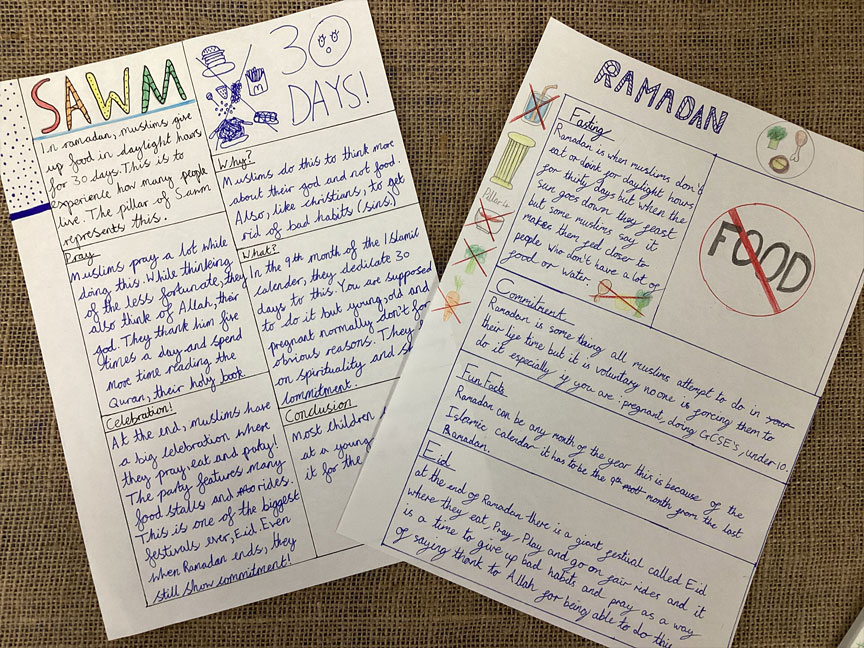 SAWM
In ramadan, muslims give
up food in daylight hours
for 30 days. This is to
experience how many people
live. The pillar of Sawm
represents this.
30
DAYS!
Why?
Muslims do this to think more
about their god and not food.
Also, like christians, to get
rid of bad habits (sins)
Pray
Muslims pray a lot while
doing this. While thinking
of the less fortunate, they
also think of Allah, their
god. They thank him five
times a day and spend
more time reading the
Quran, their holy book
What?
In the 9th month of the Islamic
calender, they dedicate 30
days to this. You are supposed
to do it but young, old and
pregnant normally don't for
obvious reasons. They
on spirituality and
commitment.
Celebration!
At the end, muslims have
a big celebration where
they pray, eat and play!
The party features many
food stalls and rides.
This is one of the biggest
festivals ever, Eid. Even
when Ramadan ends, they
still show commitment!
Conclusion
Most children
at a young
it for the
RAMADAN
Fasting
Ramadan is when muslims don't
eat or drink for daylight hours
for thirty days but when the
sun goes down they feast
but some muslims say it
makes them feel closer to
people who don't have a lot of
food or water.
Pillar 4
FOOD
Commitment
Ramadan is some thing all muslims attempt to do in
their life time but it is voluntary no one is forcing them to
do it especially if you are: pregnant, doing GCSE's, under 10.
Fun Facts
Ramadan can be any month of the year this is because of the
Islamic calendar it has to be the 9th month from the last
Ramadan.
Eid
at the end of Ramadan there is a giant festival called Eid
where they eat, Pray, Play and go on fair rides and it
is a time to give up bad habits and pray as a way
of saying thank to Allah for being able to do this